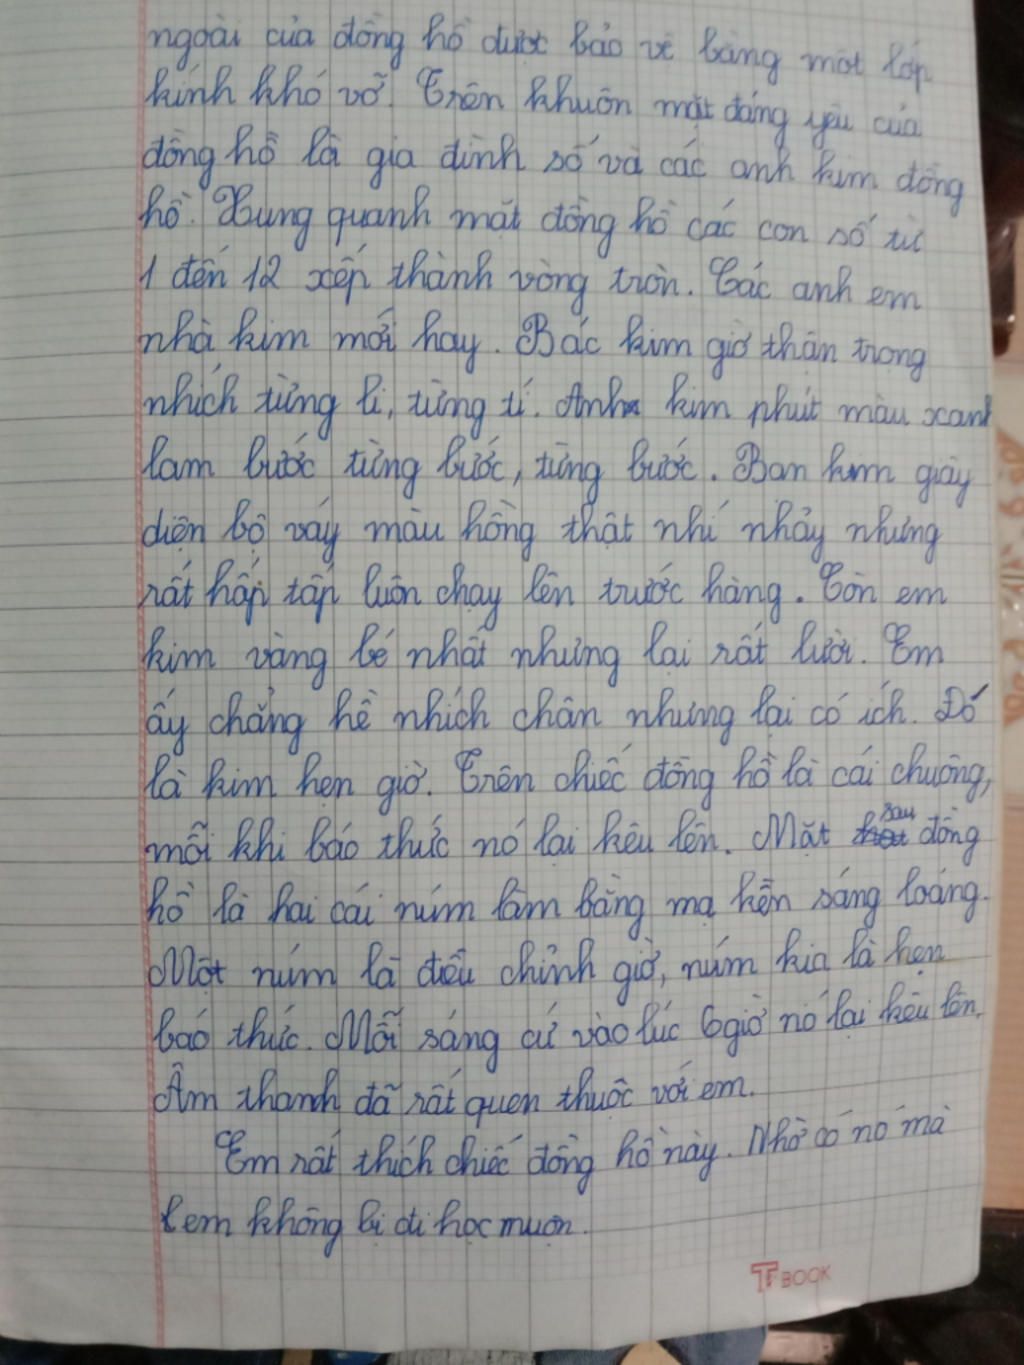 ngoài của đồng hồ được bảo vệ bằng một lớp
kính khó vỡ. Trên khuôn mặt đáng yêu của
đồng hồ là gia đình số và các anh kim đồng
hồ. Xung quanh mặt đồng hồ các con số từ
1 đến 12 xếp thành vòng tròn. Các anh em
nhà kim mới hay. Bác kim giờ thận trong
nhích từng li, từng tí. Anh kim phút màu xanh
lam bước từng bước, từng bước. Ban kim giây
diện bộ váy màu hồng thật nhí nhảy nhưng
rất hấp tấp luôn chạy lên trước hàng. Còn em
kim vàng bé nhất nhưng lại rất lười. Em
ấy chẳng hề nhích chân nhưng lại có ích. Đó
là kim hẹn giờ. Trên chiếc đồng hồ là cái chuông,
mỗi khi báo thức nó lại kêu lên. Mặt sau đồng
hồ là hai cái núm làm bằng mạ kền sáng loáng.
Một núm là điều chỉnh giờ, núm kia là hẹn
báo thức. Mỗi sáng cứ vào lúc 6 giờ nó lại kêu lên.
Âm thanh đã rất quen thuộc với em.
Em rất thích chiếc đồng hồ này. Nhờ có nó mà
em không bị đi học muộn.
TP BOOK